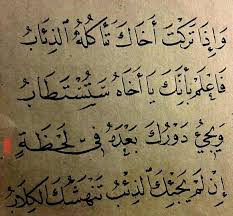 وَإِذَا تَرَكْتَ أَخَاكَ تَأْكُلُهُ الذِّئَابُ
فَاعْلَمْ بِأَنَّكَ يَا أَخَاهُ سَتُسْتَطَابُ
وَيَجِيءُ دَوْرُكَ بَعْدَهُ فِي لَحْظَةٍ
إِنْ لَمْ يَجِئْكَ الذِّئْبُ تَنْهَشُكَ الكِلَابُ